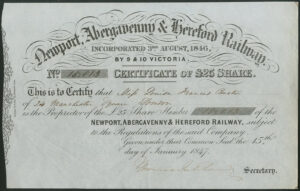 Newport, Abergavenny & Hereford Railway.
INCORPORATED 3RD AUGUST, 1846,
BY 9 & 10 VICTORIA
No. CERTIFICATE OF £25 SHARE.
This is to Certify that Miss Louisa Frances
of 24 Manchester Square London
is the Proprietor of the £25 Share Number of the
NEWPORT, ABERGAVENNY & HEREFORD RAILWAY, subject
to the Regulations of the said Company.
Given under their Common Seal the 15th
day of January 1847.
Secretary.